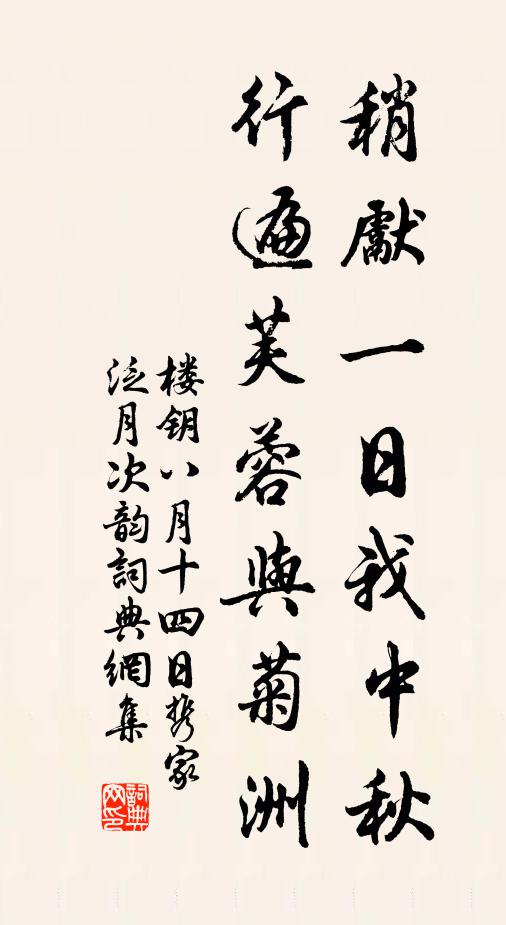 稍獻一日我中秋
行遍芙蓉與菊洲
楼钥八月十四日携家
泛月次韵詞典網集
詞典网印